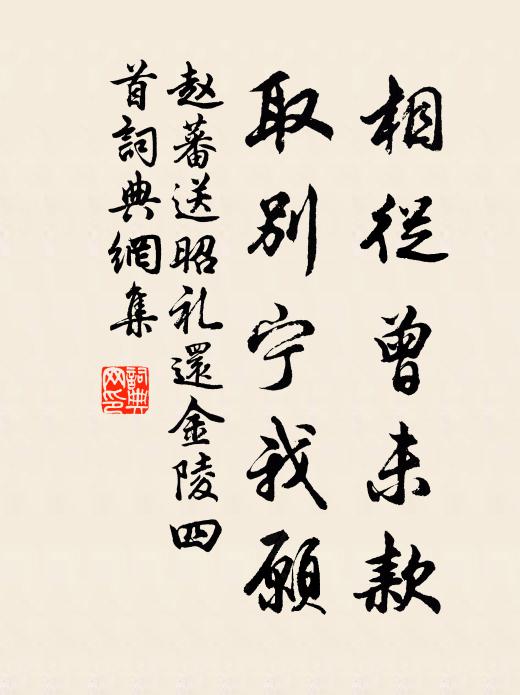 相從曾未款
取別宁我願
赵蕃送昭礼還金陵四
首詞典網集
詞典
网印